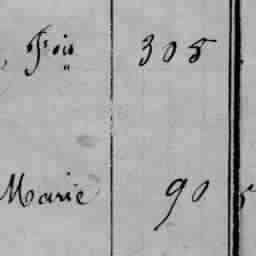 Fois 305
Marie 90